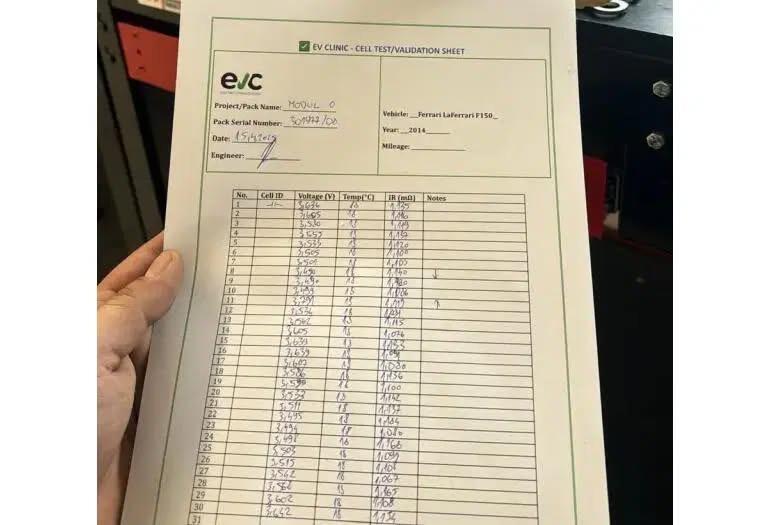 EV CLINIC - CELL TEST/VALIDATION SHEET
evc
Project/Pack Name: MODUL 0
Pack Serial Number: 301477/00
Date:
Engineer:
Vehicle: __Ferrari LaFerrari F150_
Year: __2014
Mileage:
No. Cell ID Voltage (V) Temp(°C) IR (mΩ) Notes
1 3,634 18 1,135
2 3,605 18 1,116
3 3,580 18 1,119
4 3,555 18 1,137
5 3,535 18 1,120
6 3,505 18 1,100
7 3,501 18 1,105
8 3,490 18 1,140 ↓
9 3,490 18
10 18
11 3,791 18 1,119 ↑
12 3,534 18
13 3,562 18 1,115
14 3,605 18 1,076
15 3,639 18 1,133
16 3,639 18 1,091
17 3,607 18 1,080
18 3,586 18 1,136
19 18 1,100
20 3,533 18 1,142
21 3,511 18 1,137
22 3,495 18 1,104
23 3,494 18 1,080
24 3,498 18 1,160
25 3,503 18 1,099
26 3,515 18 1,108
27 3,542 18 1,067
28 18 1,165
29 3,602 18 1,108
30 3,642 18 1,134
31